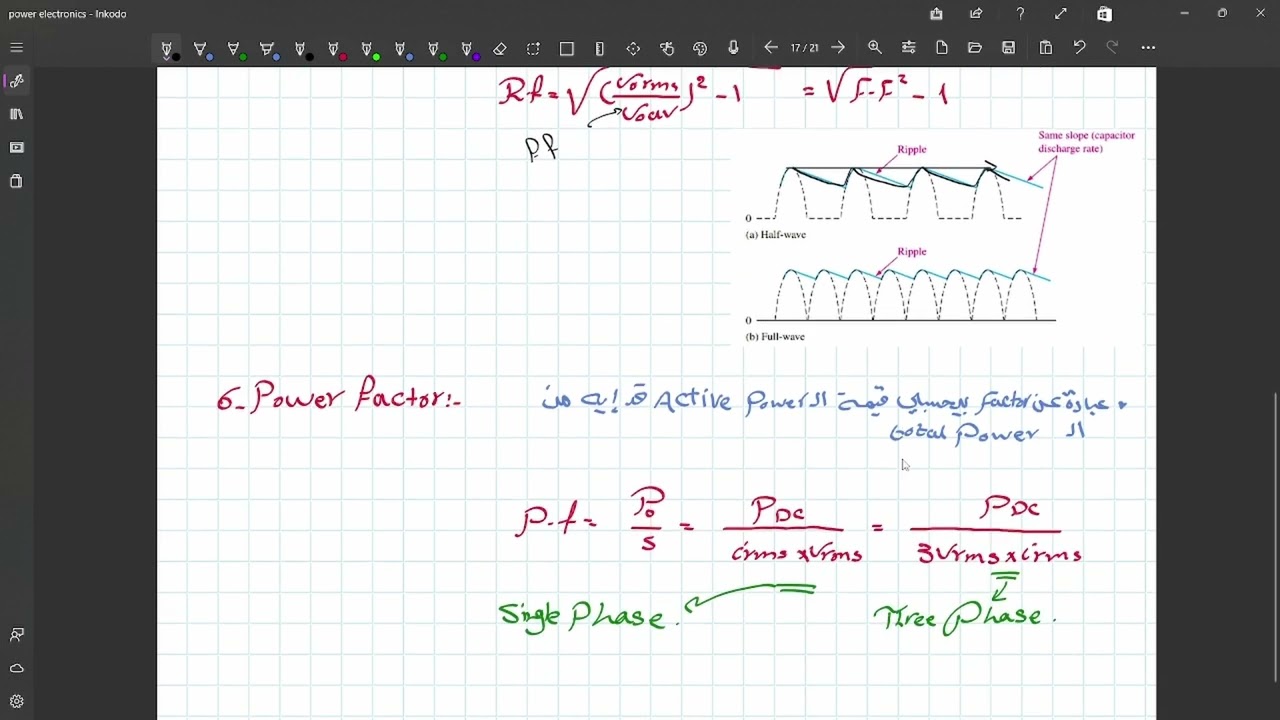 power electronics - Inkodo
17 / 21
Rf = √(Vorms/Voav)² - 1 = √F.F² - 1
Same slope (capacitor
discharge rate)
Ripple
0
(a) Half-wave
Ripple
0
(b) Full-wave
6- Power factor:-
• عبارة عن factor بيحسبلي قيمة الـ Active Power قد إيه من
الـ total Power
P.f = Po/S = PDC/(irms x Vrms) = PDC/(3Vrms x irms)
Single Phase.
Three Phase.